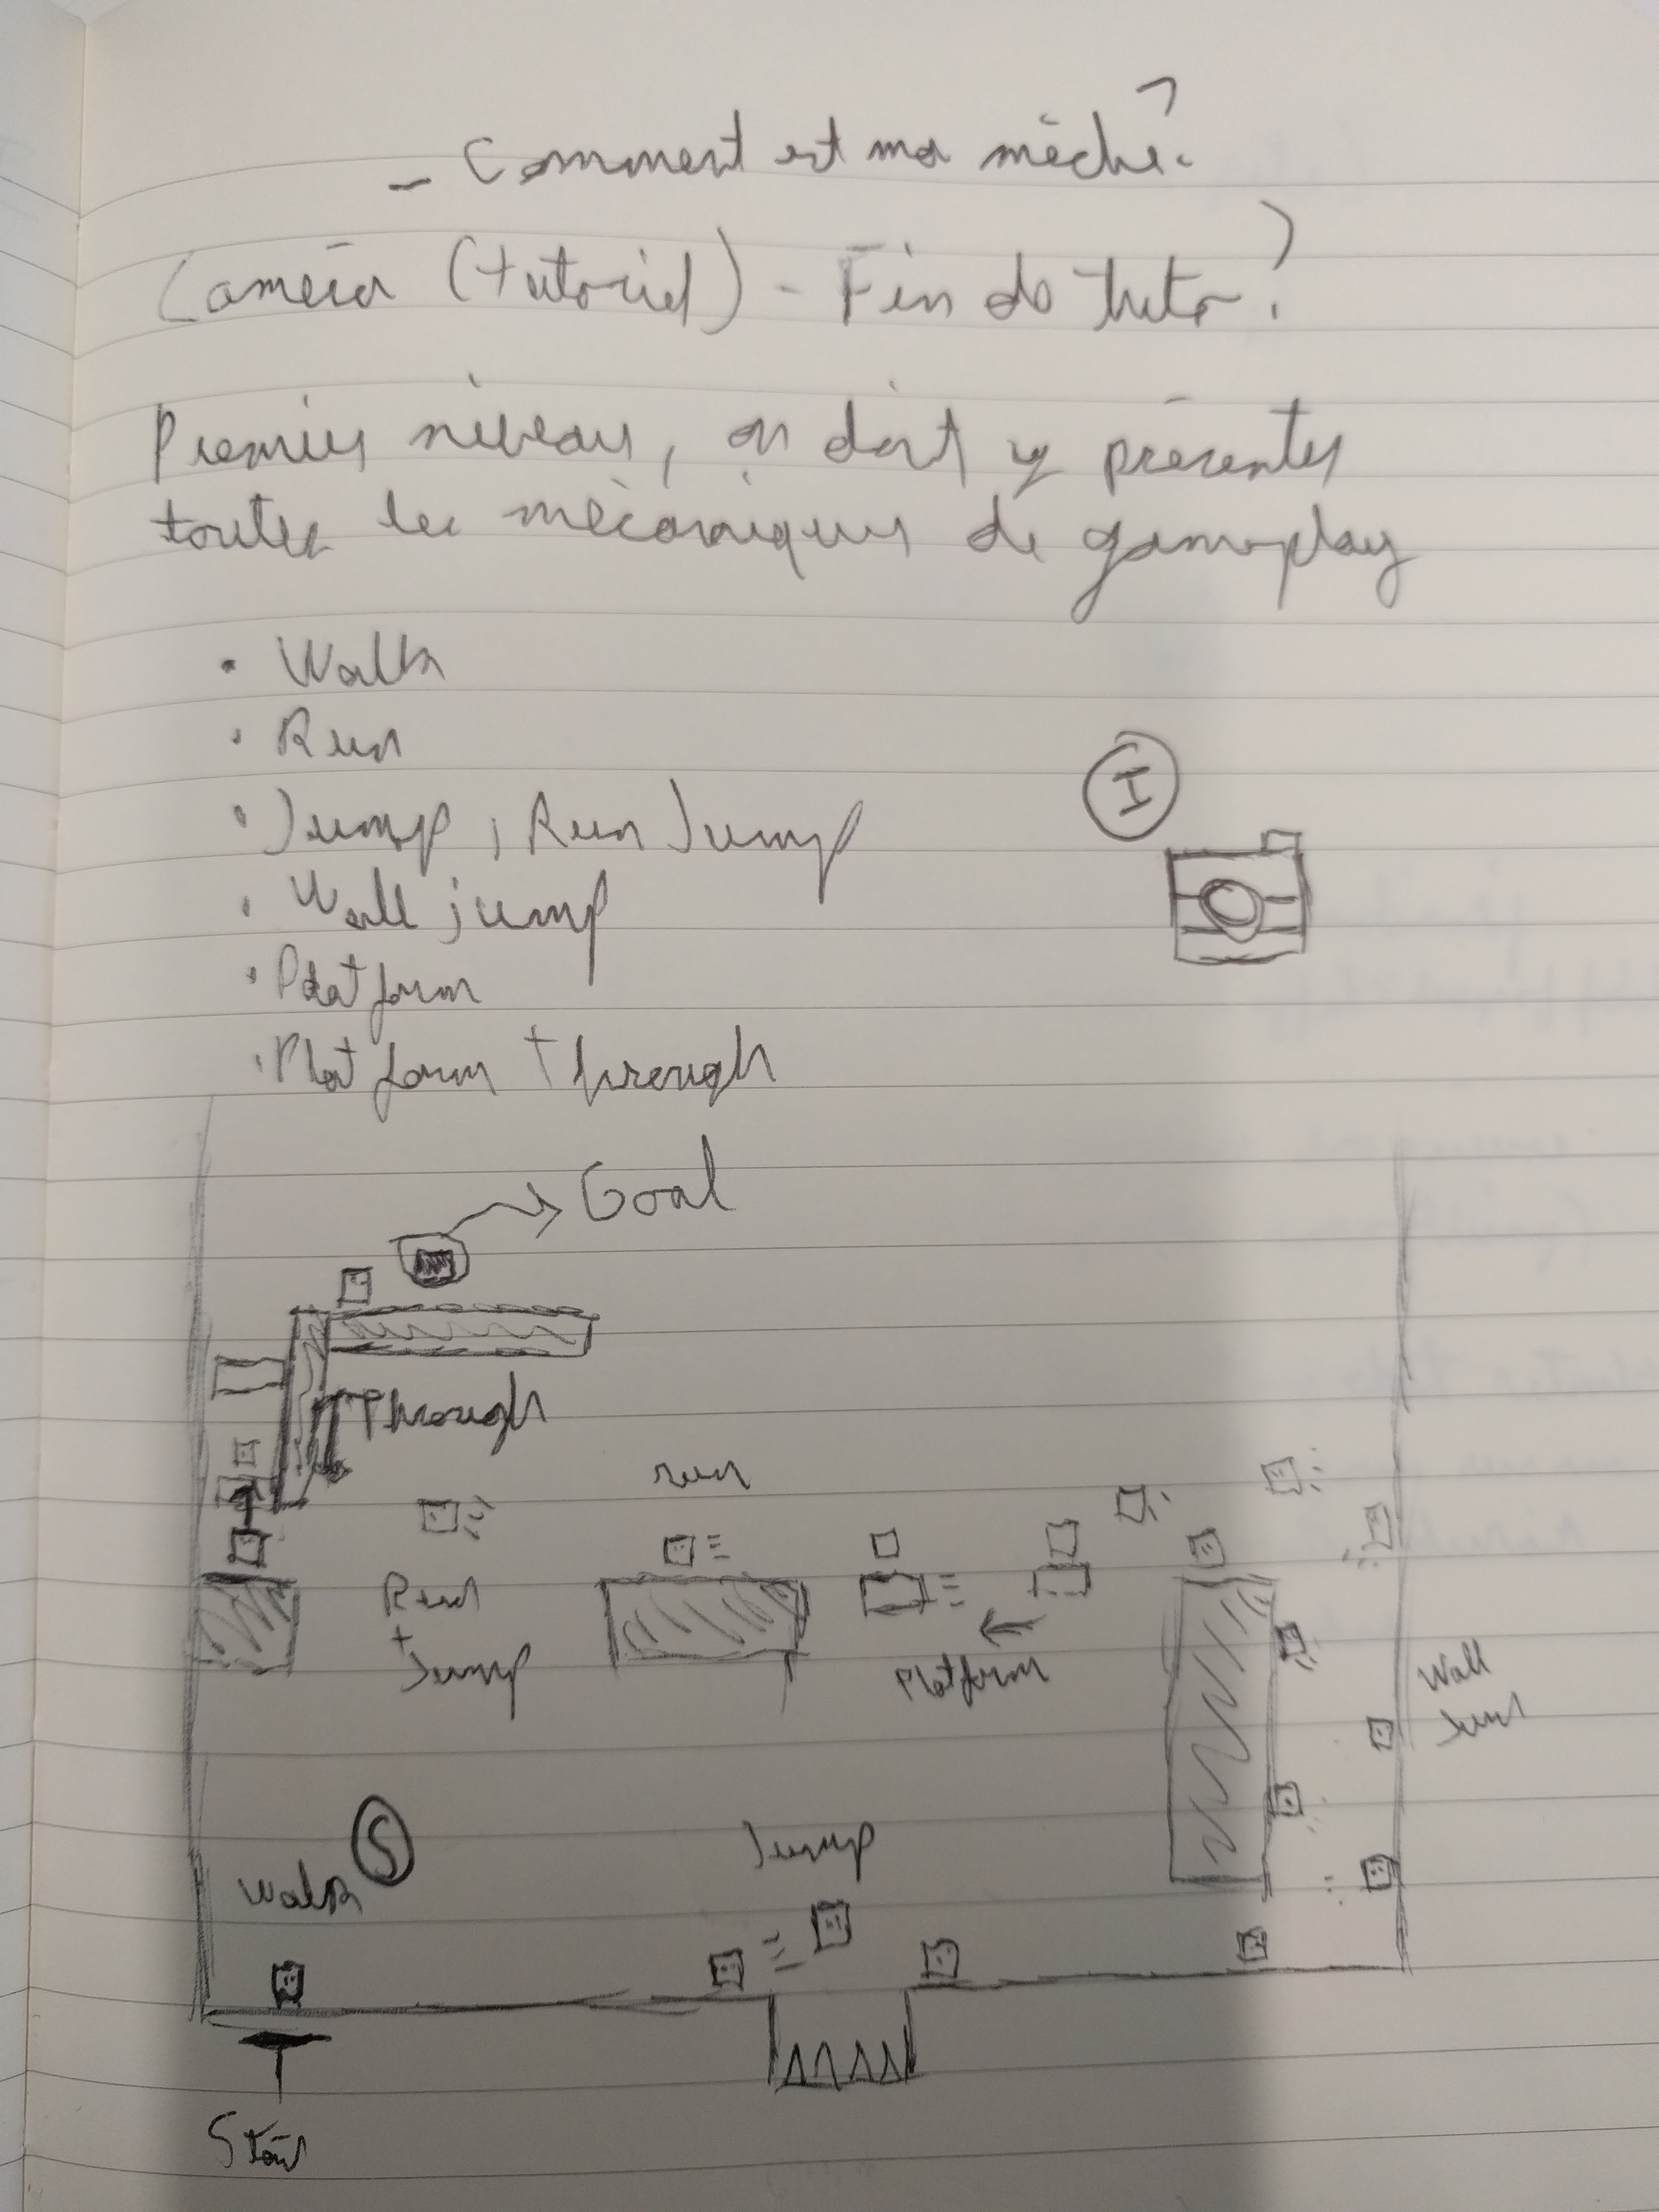 - Comment est ma mèche?
Caméra (tutoriel) - Fin do tuto?
Premier niveau, on doit y présenter
toutes les mécaniques de gameplay
• Walk
• Run
• Jump, Run Jump
• Wall jump
• Platform
• Platform through
I
Goal
Through
run
Run
+
Jump
Platform
Wall
Jump
Jump
S
Walk
Start